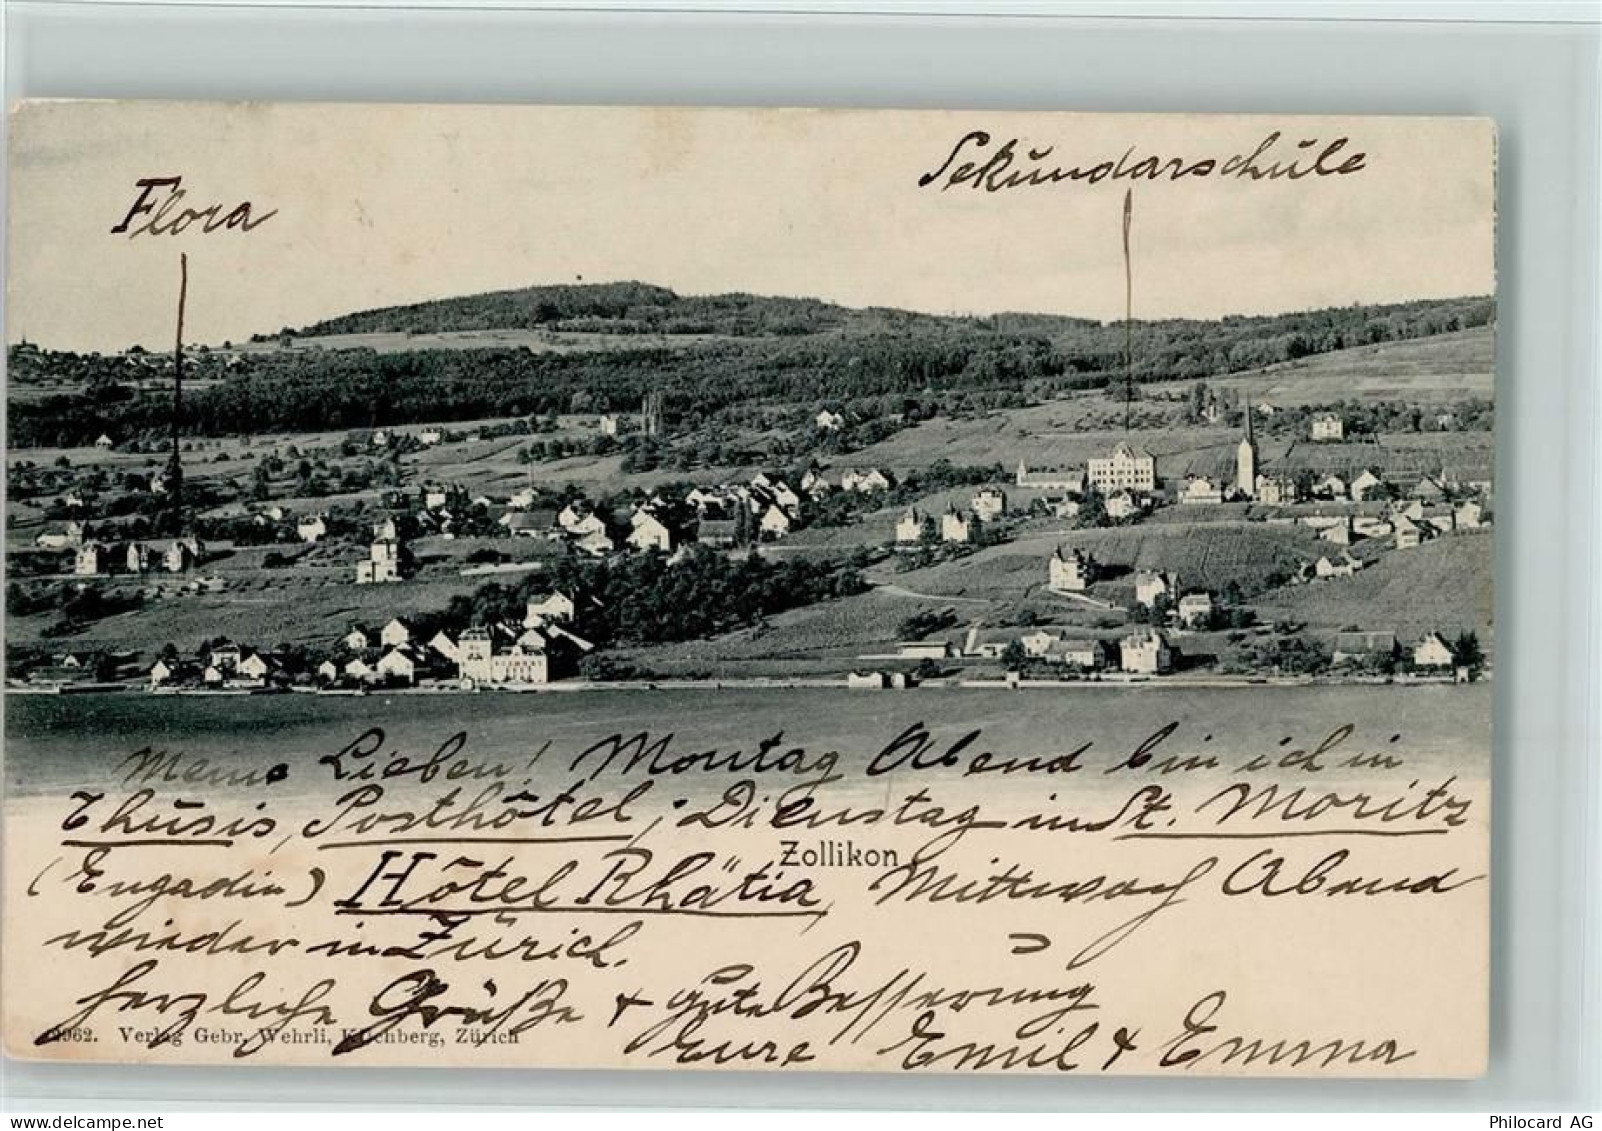 Flora
Sekundarschule
Meine Lieben! Montag Abend bin ich in
Thusis, Posthôtel; Dienstag in St. Moritz
Zollikon
(Engadin) Hôtel Rhätia, Mittwoch Abend
wieder in Zürich.
herzliche Grüße + gute Besserung
Eure Emil & Emma
Verlag Gebr. Wehrli, Kilchberg, Zürich
Philocard AG